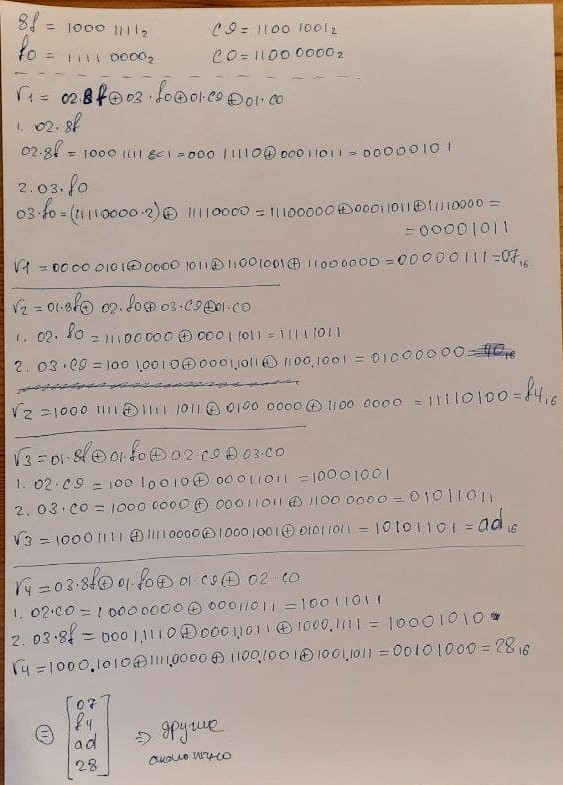 8f = 1000 1111₂ c9 = 1100 1001₂
f0 = 1111 0000₂ c0 = 1100 0000₂
r1 = 02·8f⊕03·f0⊕01·c9⊕01·c0
1. 02·8f
02·8f = 1000 1111 <<1 = 000 11110⊕00011011 = 00000101
2. 03·f0
03·f0 = (11110000·2)⊕ 11110000 = 11100000⊕00011011⊕11110000 =
= 00001011
r1 = 0000 0101⊕0000 1011⊕11001001⊕ 11000000 = 00000111 = 07₁₆
r2 = 01·8f⊕ 02·f0⊕03·c9⊕01·c0
1. 02·f0 = 11100000 ⊕ 00011011 = 11111011
2. 03·c9 = 1001,0010⊕0001,1011⊕1100,1001 = 01000000
r2 = 1000 1111⊕1111 1011⊕ 0100 0000⊕ 1100 0000 = 11110100 = f4₁₆
r3 = 01·8f⊕01·f0⊕02·c9⊕03·c0
1. 02·c9 = 100 10010⊕ 00011011 = 10001001
2. 03·c0 = 1000 0000⊕ 00011011 ⊕ 1100 0000 = 01011011
r3 = 10001111⊕11110000⊕10001001⊕01011011 = 10101101 = ad₁₆
r4 = 03·8f⊕01·f0⊕ 01·c9⊕ 02·c0
1. 02·c0 = 10000000⊕ 00011011 = 10011011
2. 03·8f = 0001,1110⊕0001,1011⊕1000,1111 = 10001010
r4 = 1000,1010⊕1111,0000⊕ 1100,1001⊕1001,1011 = 00101000 = 28₁₆
= [07
f4
ad
28] ⇒ другие
аналогично